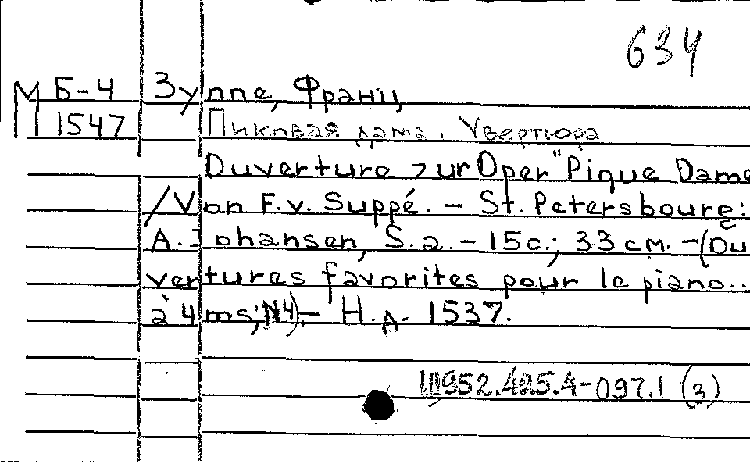 634
М Б-4 Зуппе, Франц
1547 Пиковая дама. Увертюра
Ouverture zur Oper "Pique Dame
/Von F.v. Suppé. – St. Petersboure:
A. Johansen, S.a. – 15c.; 33 см. – (Ou
vertures favorites pour le piano...
à 4 ms; N4). – Н.д. 1537.
Ш952.425.4-097.1 (3)